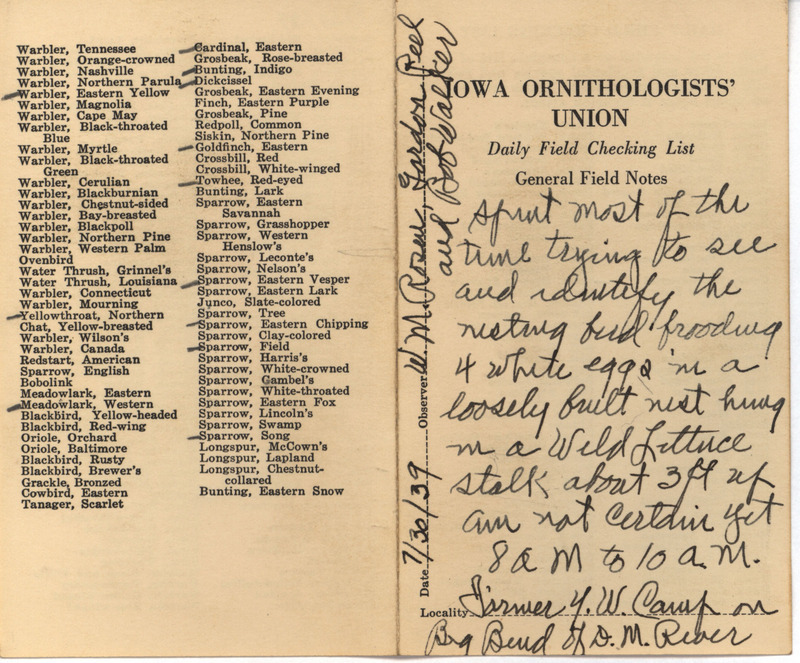 Warbler, Tennessee
Warbler, Orange-crowned
Warbler, Nashville
Warbler, Northern Parula
Warbler, Eastern Yellow
Warbler, Magnolia
Warbler, Cape May
Warbler, Black-throated
Blue
Warbler, Myrtle
Warbler, Black-throated
Green
Warbler, Cerulian
Warbler, Blackburnian
Warbler, Chestnut-sided
Warbler, Bay-breasted
Warbler, Blackpoll
Warbler, Northern Pine
Warbler, Western Palm
Ovenbird
Water Thrush, Grinnel's
Water Thrush, Louisiana
Warbler, Connecticut
Warbler, Mourning
Yellowthroat, Northern
Chat, Yellow-breasted
Warbler, Wilson's
Warbler, Canada
Redstart, American
Sparrow, English
Bobolink
Meadowlark, Eastern
Meadowlark, Western
Blackbird, Yellow-headed
Blackbird, Red-wing
Oriole, Orchard
Oriole, Baltimore
Blackbird, Rusty
Blackbird, Brewer's
Grackle, Bronzed
Cowbird, Eastern
Tanager, Scarlet
Cardinal, Eastern
Grosbeak, Rose-breasted
Bunting, Indigo
Dickcissel
Grosbeak, Eastern Evening
Finch, Eastern Purple
Grosbeak, Pine
Redpoll, Common
Siskin, Northern Pine
Goldfinch, Eastern
Crossbill, Red
Crossbill, White-winged
Towhee, Red-eyed
Bunting, Lark
Sparrow, Eastern
Savannah
Sparrow, Grasshopper
Sparrow, Western
Henslow's
Sparrow, Leconte's
Sparrow, Nelson's
Sparrow, Eastern Vesper
Sparrow, Eastern Lark
Junco, Slate-colored
Sparrow, Tree
Sparrow, Eastern Chipping
Sparrow, Clay-colored
Sparrow, Field
Sparrow, Harris's
Sparrow, White-crowned
Sparrow, Gambel's
Sparrow, White-throated
Sparrow, Eastern Fox
Sparrow, Lincoln's
Sparrow, Swamp
Sparrow, Song
Longspur, McCown's
Longspur, Lapland
Longspur, Chestnut-
collared
Bunting, Eastern Snow
Date 7/30/39 Observer W. M. Rosen, Gordon Reel
and Bob Walker
IOWA ORNITHOLOGISTS'
UNION
Daily Field Checking List
General Field Notes
Spent most of the
time trying to see
and identify the
nesting bird brooding
4 white eggs in a
loosely built nest hung
in a Wild Lettuce
stalk about 3 ft up
am not certain yet
8 a M to 10 a.M.
Locality Former Y.W. Camp on
Big Bend of D.M. River